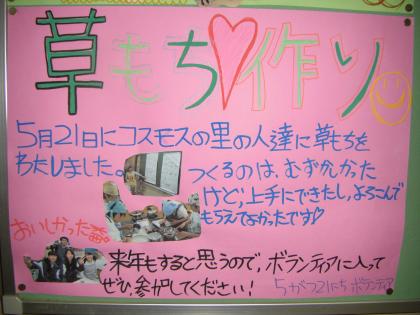 草もち♡作り。
5月21日にコスモスの里の人達に草もちを
わたしました。
つくるのは、むずかしかった
けど、上手にできたし、よろこんで
もらえてよかったです♡
おいしかったね。
来年もすると思うので、ボランティアに入って
ぜひ、参加してください!
5がつ21にち ボランティア